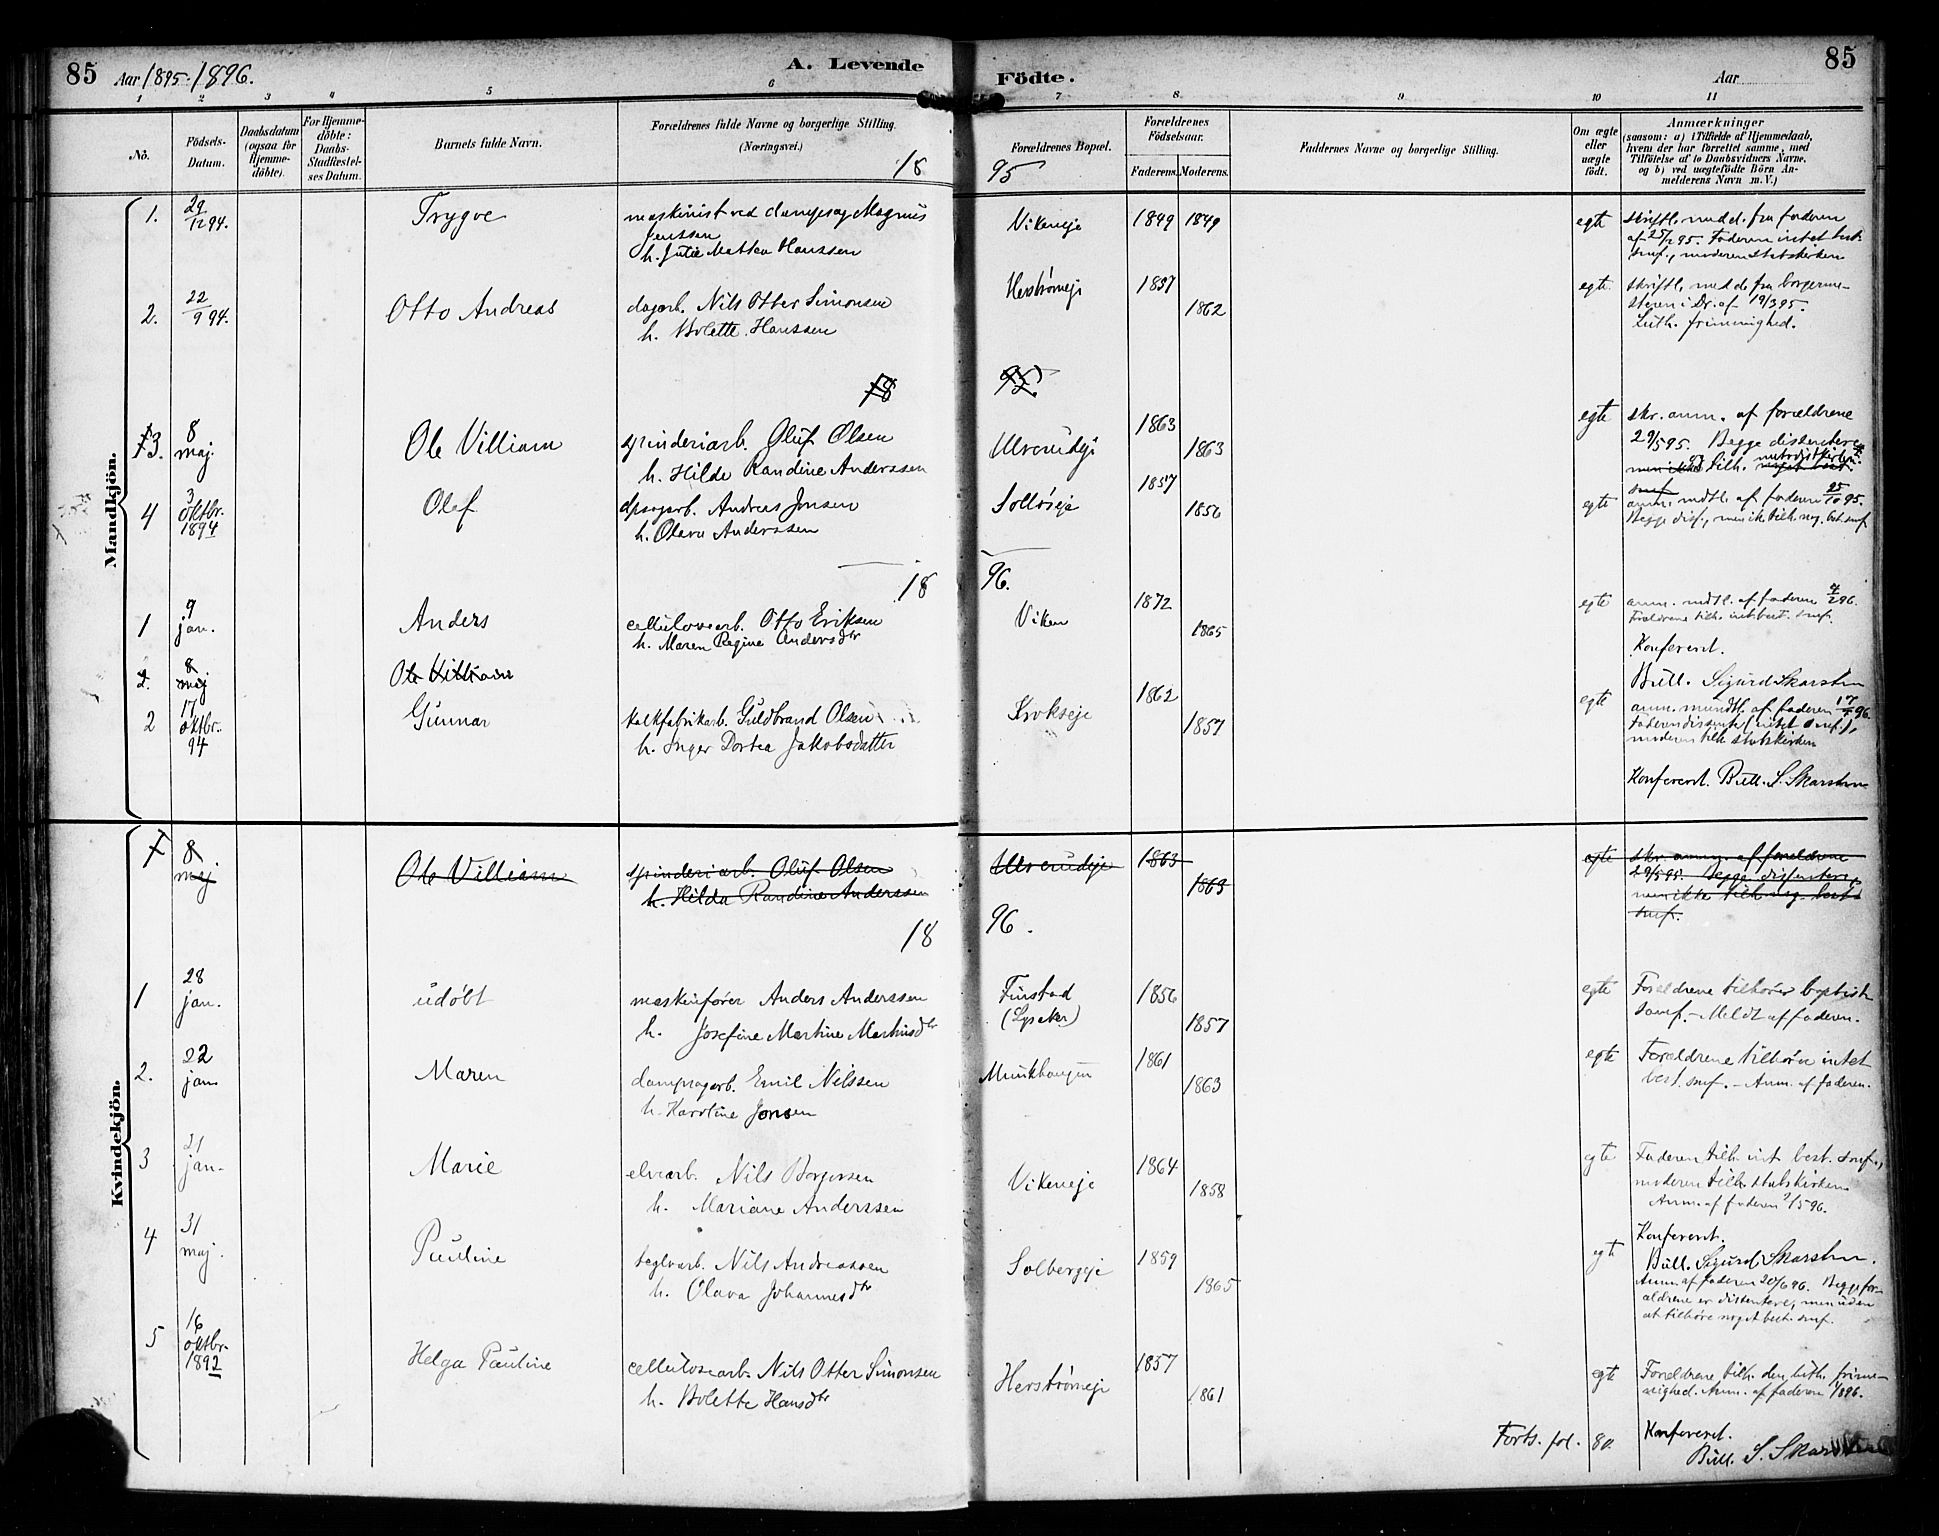 85 Aar 1895-1896. A. Levende Födte. Aar 85
1 2 3 4 5 6 7 8 9 10 11
No. Födsels-Datum. Daabsdatum (ogsaa for Hjemme-döbte). For Hjemme-döbte: Daabs-Stadfæstel-ses Datum. Barnets fulde Navn. Forældrenes fulde Navne og borgerlige Stilling. (Næringsvei.) Forældrenes Bopæl. Forældrenes Födselsaar. Faderens. Moderens. Faddernes Navne og borgerlige Stilling. Om ægte eller uægte födt. Anmærkninger (saasom: a) i Tilfælde af Hjemmedaab, hvem der har forrettet samme, med Tilföielse af to Daabsvidners Navne. og b) ved uægtefödte Börn An-melderens Navn m. V.)
18 95
Mandkjön.
1. 29/12 94. Trygve maskinist ved dampsag Magnus
Jenssen
h. Julie Mathea Hanssen
Vikeneje 1849 1849 egte skriftl. medd. fra faderen
af 25/2 95. Faderen intet best.
smf., moderen statskirken
2. 22/9 94. Otto Andreas dagarb. Nils Otter Simonsen
h. Bolette Hanssen
Herstrømeje 1857 1862 egte skriftl. medd. fra borgerme-
steren i Dr. af 19/3 95.
Luth. frimenighed.
18 95
3. 8 maj. Ole Villiam spinderiarb. Oluf Olsen
h. Hilda Randine Anderssen
Ulverudeje 1863 1863 egte skr. anm. af forældrene
29/5 95. Begge dissentere
men ikke tilh. noget best. metodistkirken
smf
4 3 oktbr. 1894 Olef dpsagarb. Andreas Jensen
h. Olava Anderssen
Solløseje 1857 1856 egte anm. mdtl. af faderen 25/10 95.
Begge diss., men ik. tilh. nog. best. smf
18 96.
1 9 jan. Anders cellulosearb. Otto Eriksen
h. Maren Regine Andersdtr
Viken 1872 1865 egte anm. mdtl. af faderen 4/2 96.
Forældrene tilh. int. best. smf.
Konfereret.
Bull. Sigurd Skarsten
2. 8 maj Ole Villiam
2 17 oktbr. 94 Gunnar kalkfabrikarb. Guldbrand Olsen
h. Inger Dortea Jakobsdatter
Krokseje 1862 1857 egte anm. mundtl. af faderen 96.
Faderen dissenter (intet smf.),
moderen tilh. statskirken
Konfereret. Bull. S. Skarsten
Kvindekjön.
1 8 maj Ole Villiam spinderiarb. Oluf Olsen
h. Hilda Randine Anderssen
Ulverudeje 1863 1863 egte skr. anm. af forældrene
29/5 95. Begge dissentere,
men ikke tilh. nog. best.
smf.
18 96.
1 28 jan. udøbt maskinfører Anders Anderssen
h. Josefine Martine Martinsdtr
Finstad
(Lysaker)
1856 1857 egte Forældrene tilhører baptist
samf. - Meldt af faderen.
2. 22 jan. Maren dampsagarb. Emil Nilssen
h. Karoline Jonsen
Munkhaugen 1861 1863 egte Forældrene tilhører intet
best. smf. - Anm. af faderen.
3 21 jan- Marie elvearb. Nils Borgersen
h. Mariane Anderssen
Vikeneje 1864 1858 egte Faderen tilh. int. best. smf.,
moderen tilh. statskirken
Anm. af faderen 9/5 96.
Konfereret.
Bull. Sigurd Skarsten.
4 31 maj. Pauline teglvarb. Nils Andreassen
h. Olava Johannesdtr
Solbergeje 1859 1865 egte Anm. af faderen 20/6 96. Begge for-
ældrene er dissentere, men uden
at tilhøre noget best. smf.
5 16 oktbr. 1892 Helga Pauline cellulosearb. Nils Otter Simonsen
h. Bolette Hansdtr
Herstrømeje 1857 1861 egte Forældrene tilh. den luth. frime-
nighed. Anm. af faderen 1/8 96.
Forts. fol. 80. Konfereret.
Bull. S. Skarsten